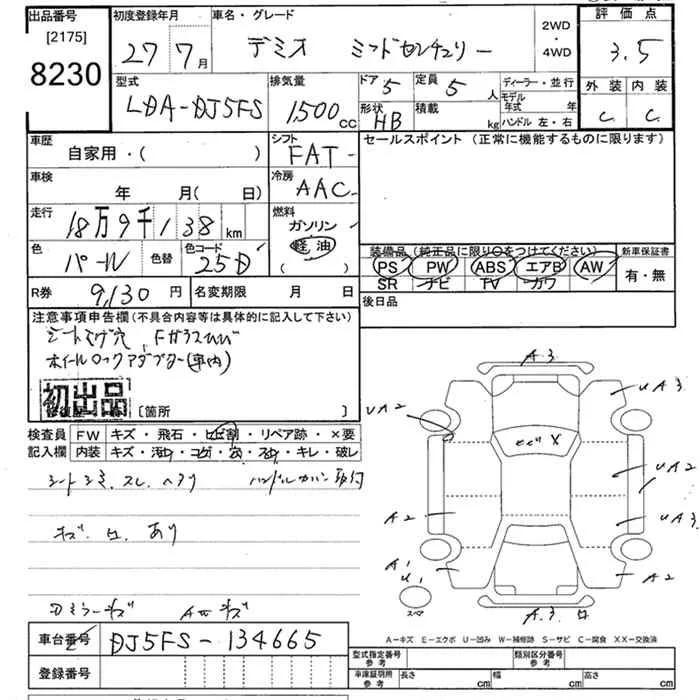 出品番号
[2175]
8230
初度登録年月
27 7月
車名・グレード
デミオ ミッドセンチュリー
2WD
・
4WD
評価点
3.5
外装 内装
C C
型式
LDA-DJ5FS
排気量
1,500 CC
ドア 5
定員 5 人
形状 HB
積載 kg
ディーラー・並行
モデル年式 年
ハンドル 左・右
車歴
自家用・( )
シフト
FAT
セールスポイント (正常に機能するものに限ります)
車検
年 月( 日)
冷房
AAC
走行
18万9千138 km
燃料
ガソリン
軽油
( )
色
パール
色替
色コード
25D
装備品 (純正品に限り○をつけてください)
PS PW ABS エアB AW
SR ナビ TV カワ
新車保証書
有・無
R券 9,130 円
名変期限 月 日
後日品
注意事項申告欄(不具合内容等は具体的に記入して下さい)
シートコゲ穴、Fガラスひび
ホイールロックアダプター(車内)
初出品
[箇所 ]
検査員記入欄
FW キズ・飛石・ヒビ割・リペア跡・×要
内装 キズ・汚れ・コゲ・穴・スレ・キレ・破レ
シートシミ、スレ、ヘタリ ハンドルカバー取付
キズ、凹、あり
ミラーキズ AWキズ
A3
UA3
UA2
ヒビX
UA2
UA3
A2
A1
U1
A2
A3 凹
スマ
A－キズ E－エクボ U－凹み W－補修跡 S－サビ C－腐食 XX－交換済
車台番号 DJ5FS-134665
登録番号
型式指定番号
参考
類別区分番号
参考
車庫証明用
参考
長さ cm
幅 cm
高さ cm